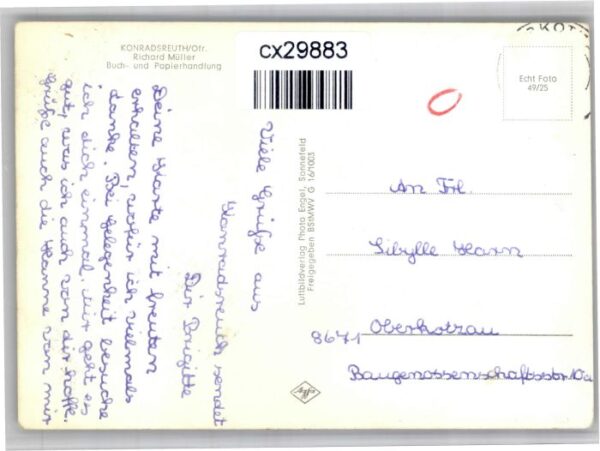 KONRADSREUTH/Ofr.
Richard Müller
Buch- und Papierhandlung
cx29883
Echt Foto
49/25
Viele Grüße aus
Konradsreuth sendet
Dir Brigitte
Deine Karte mit Freuden
erhalten, wofür ich vielmals
danke. Bei Gelegenheit besuche
ich dich einmal. Mir geht es
gut, was ich auch von dir hoffe.
Grüße auch die Hanne von mir
Luftbildverlag Photo Engel, Sonnefeld
Freigegeben BStMWV G 16/1003
An Frl.
Sibylle
8671 Oberkotzau
Baugenossenschaftsstr.
Agfa